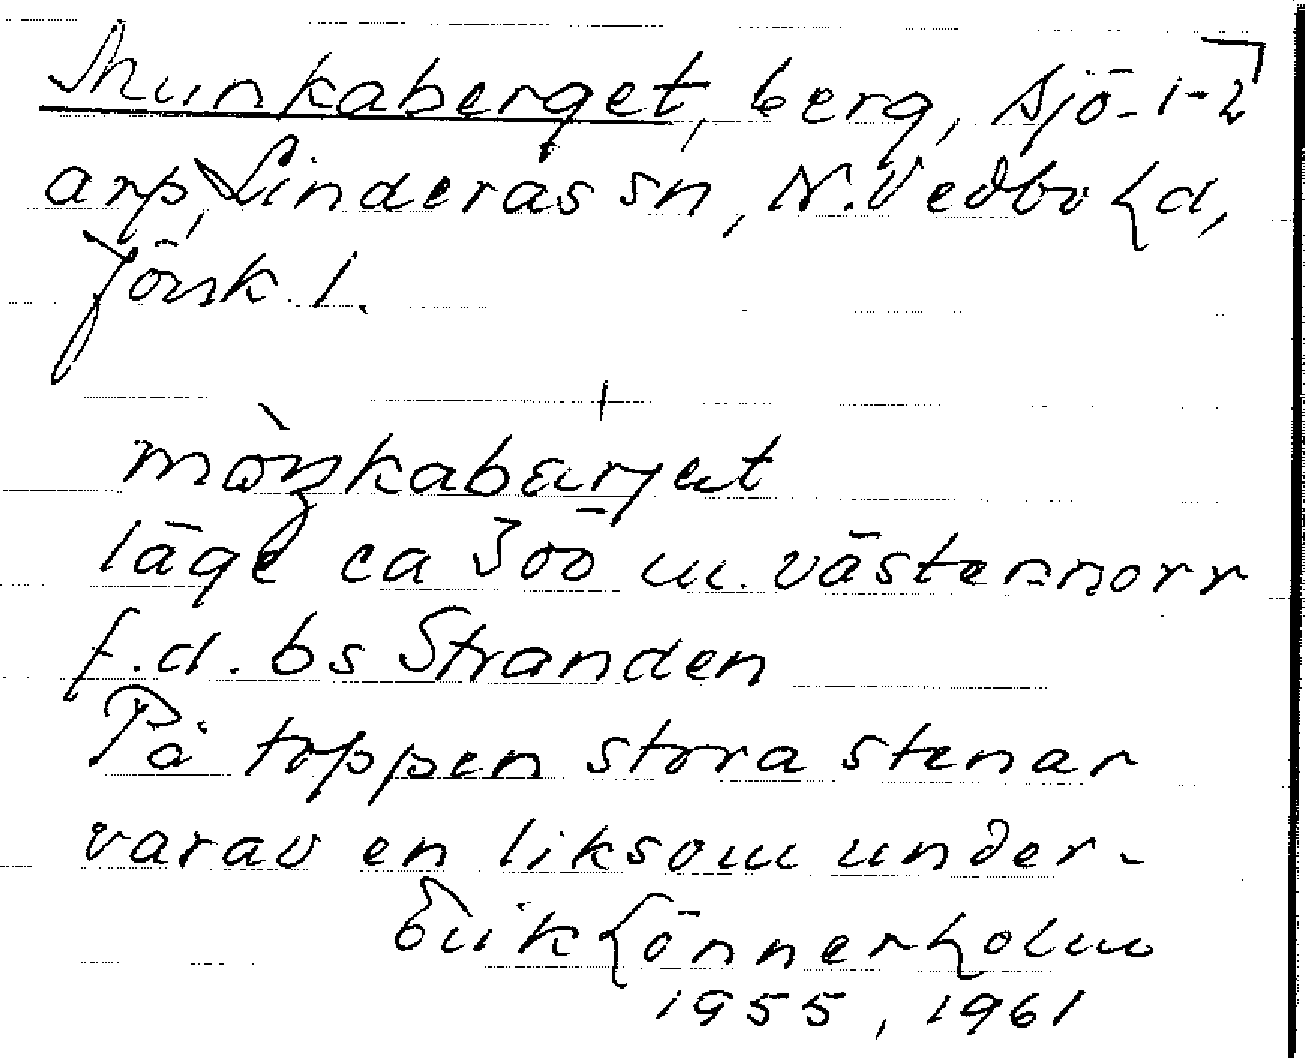 Munkaberget, berg, Sjö- 1-2
arp, Linderås sn, N. Vedbo hd,
Jönk. l.
mòŋkabærjet
läge ca 300 m. västernorr
f.d. bs Stranden
På toppen stora stenar
varav en liksom under-
Erik Lönnerholm
1955, 1961